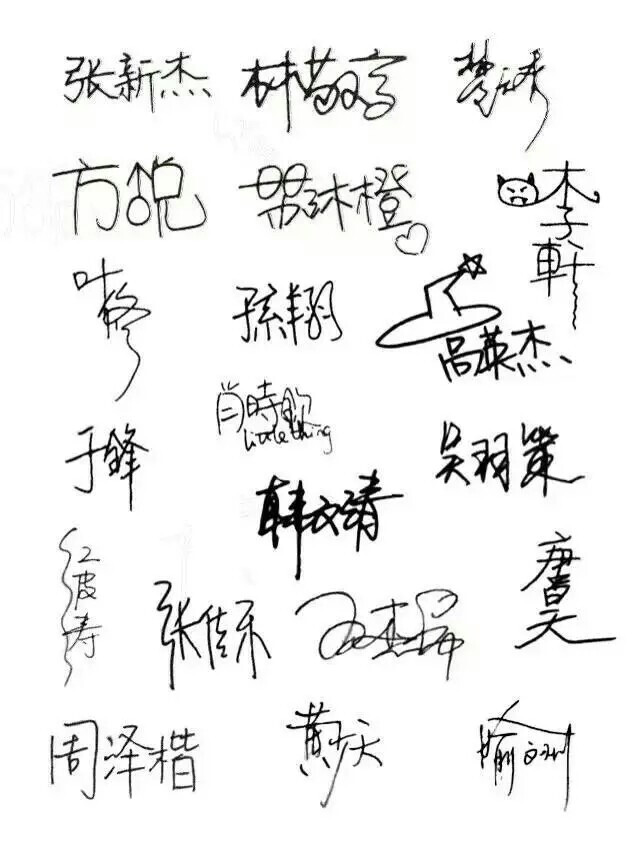 张新杰 林敬言 楚云秀
方锐 苏沐橙 李轩
叶修 孫翔 高英杰
肖時欽
Little thing
于锋 吴羽策
韩文清
江波涛 张佳乐 王杰希 唐昊
周泽楷 黄少天 喻文州